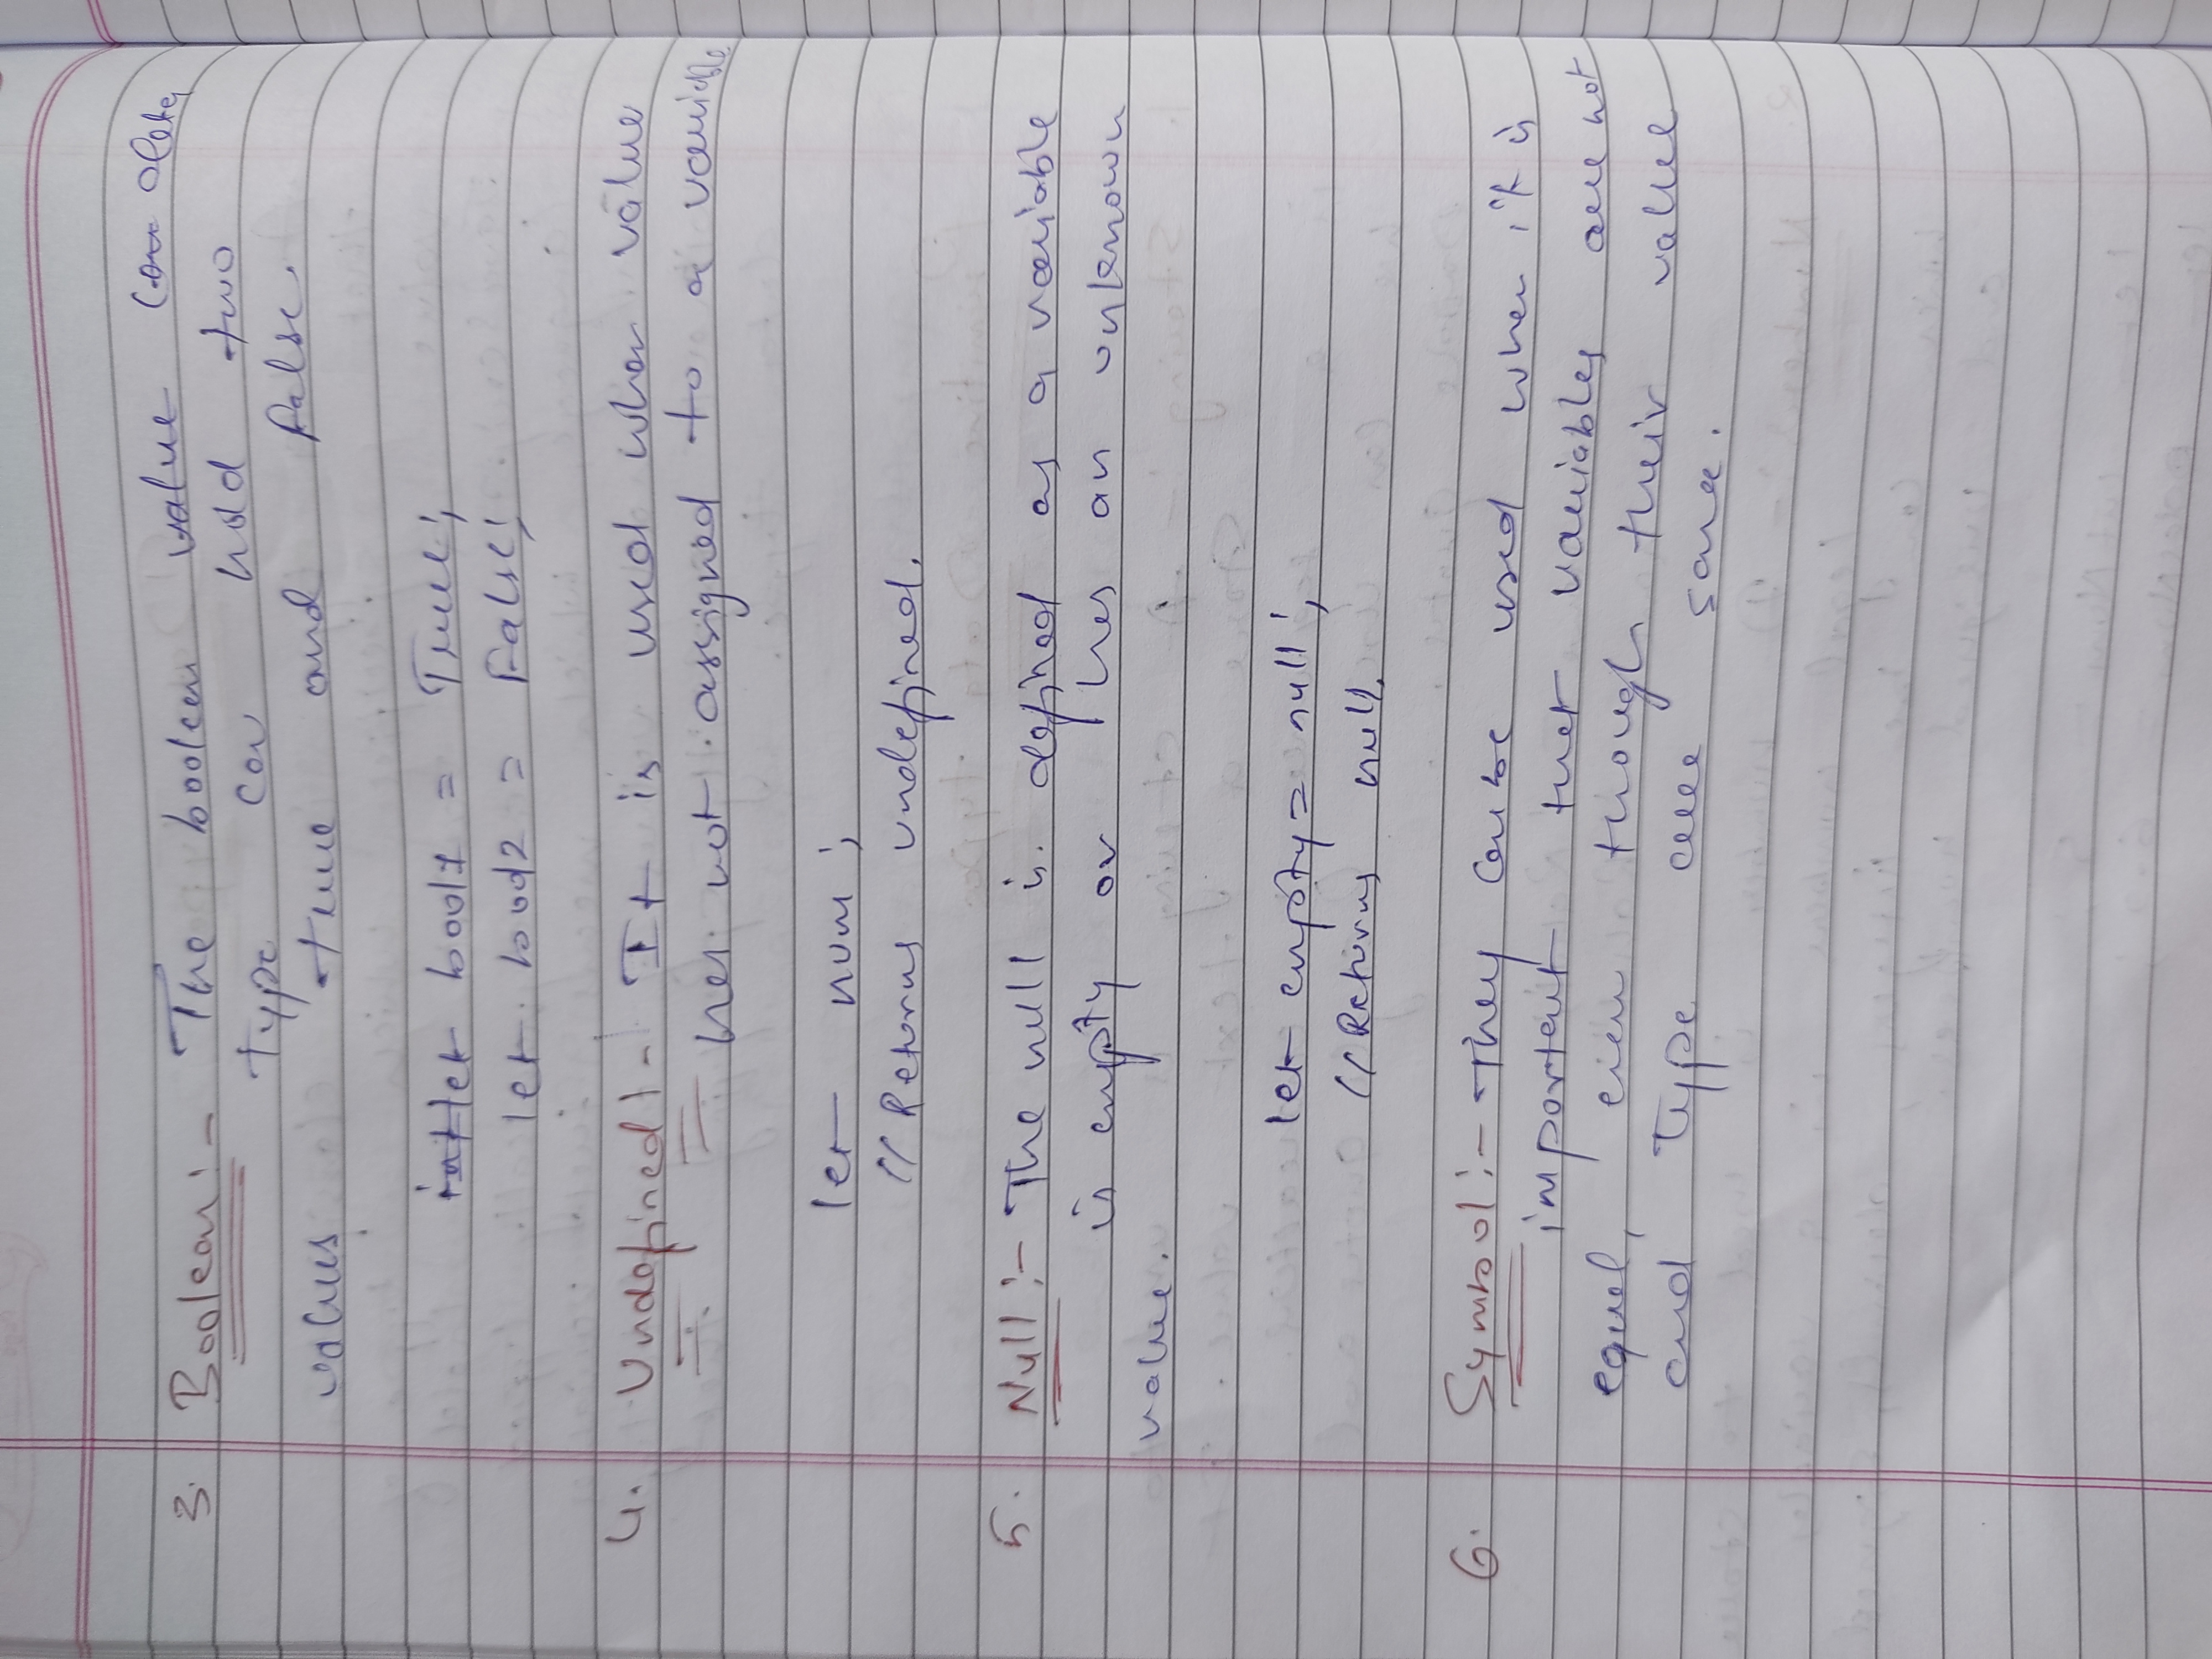 3. Boolean:- The boolean value data
type can hold two
values true and false.
let bool1 = True;
let bool2 = False;
4. Undefined:- It is used when value
has not assigned to a variable
let num;
//Returns undefined.
5. Null:- The null is defined as a variable
is empty or has an unknown
value.
let empty = null;
//Returns null.
6. Symbol:- They can be used when it is
important that variables are not
equal, even though their value
and type are same.